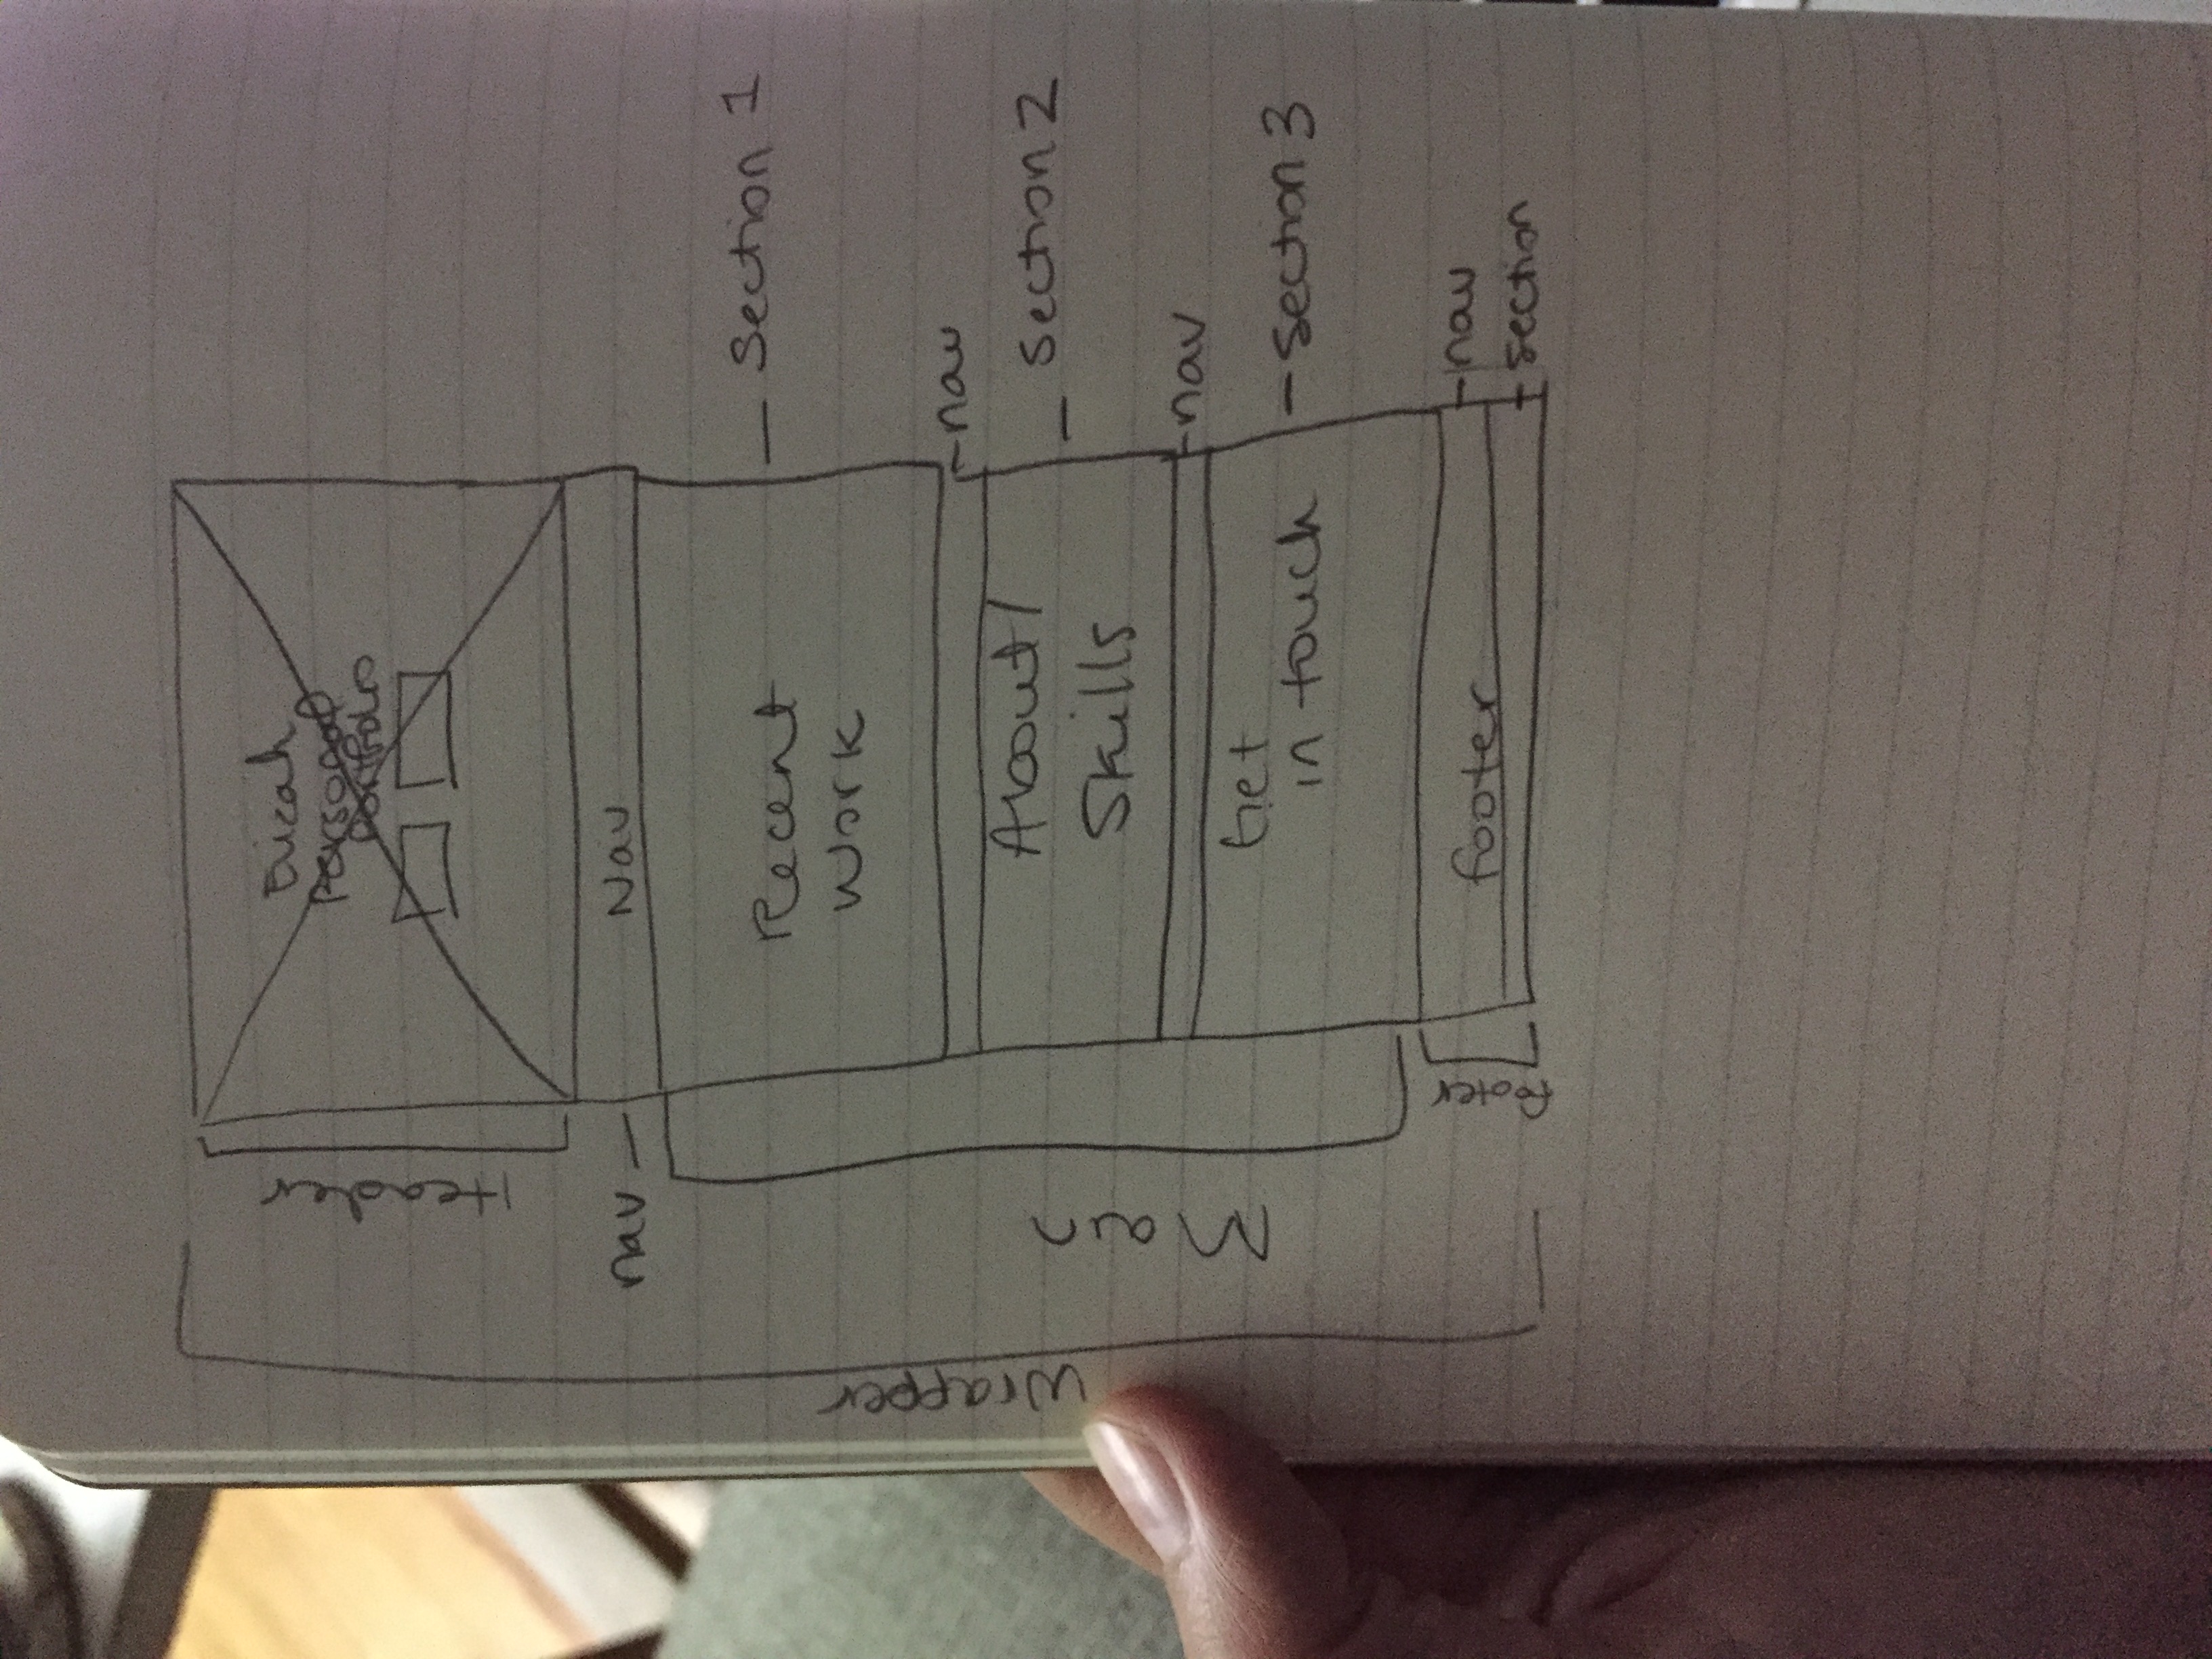 Header
Ericah
Personal
Portfolio
nav
Nav
Wrapper
Main
Recent
Work
Section 1
nav
About/
Skills
Section 2
nav
Get
in touch
Section 3
footer
footer
nav
section